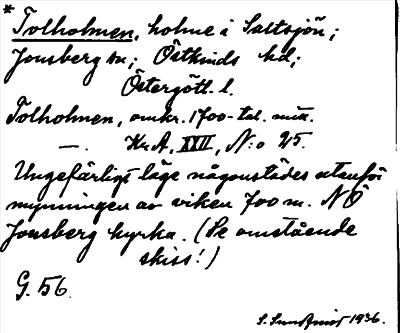 * Tolholmen, holme i Saltsjön;
Jonsberg sn; Östkinds hd;
Östergötl. l.
Tolholmen, omkr. 1700-tal. mitt.
— . Kr. A. XXII, N:o 25.
Ungefärligt läge någonstädes utanför
mynningen av viken 700 m. NÖ
Jonsberg kyrka. (Se omstående
skiss!)
G. 56.
S. 1936.